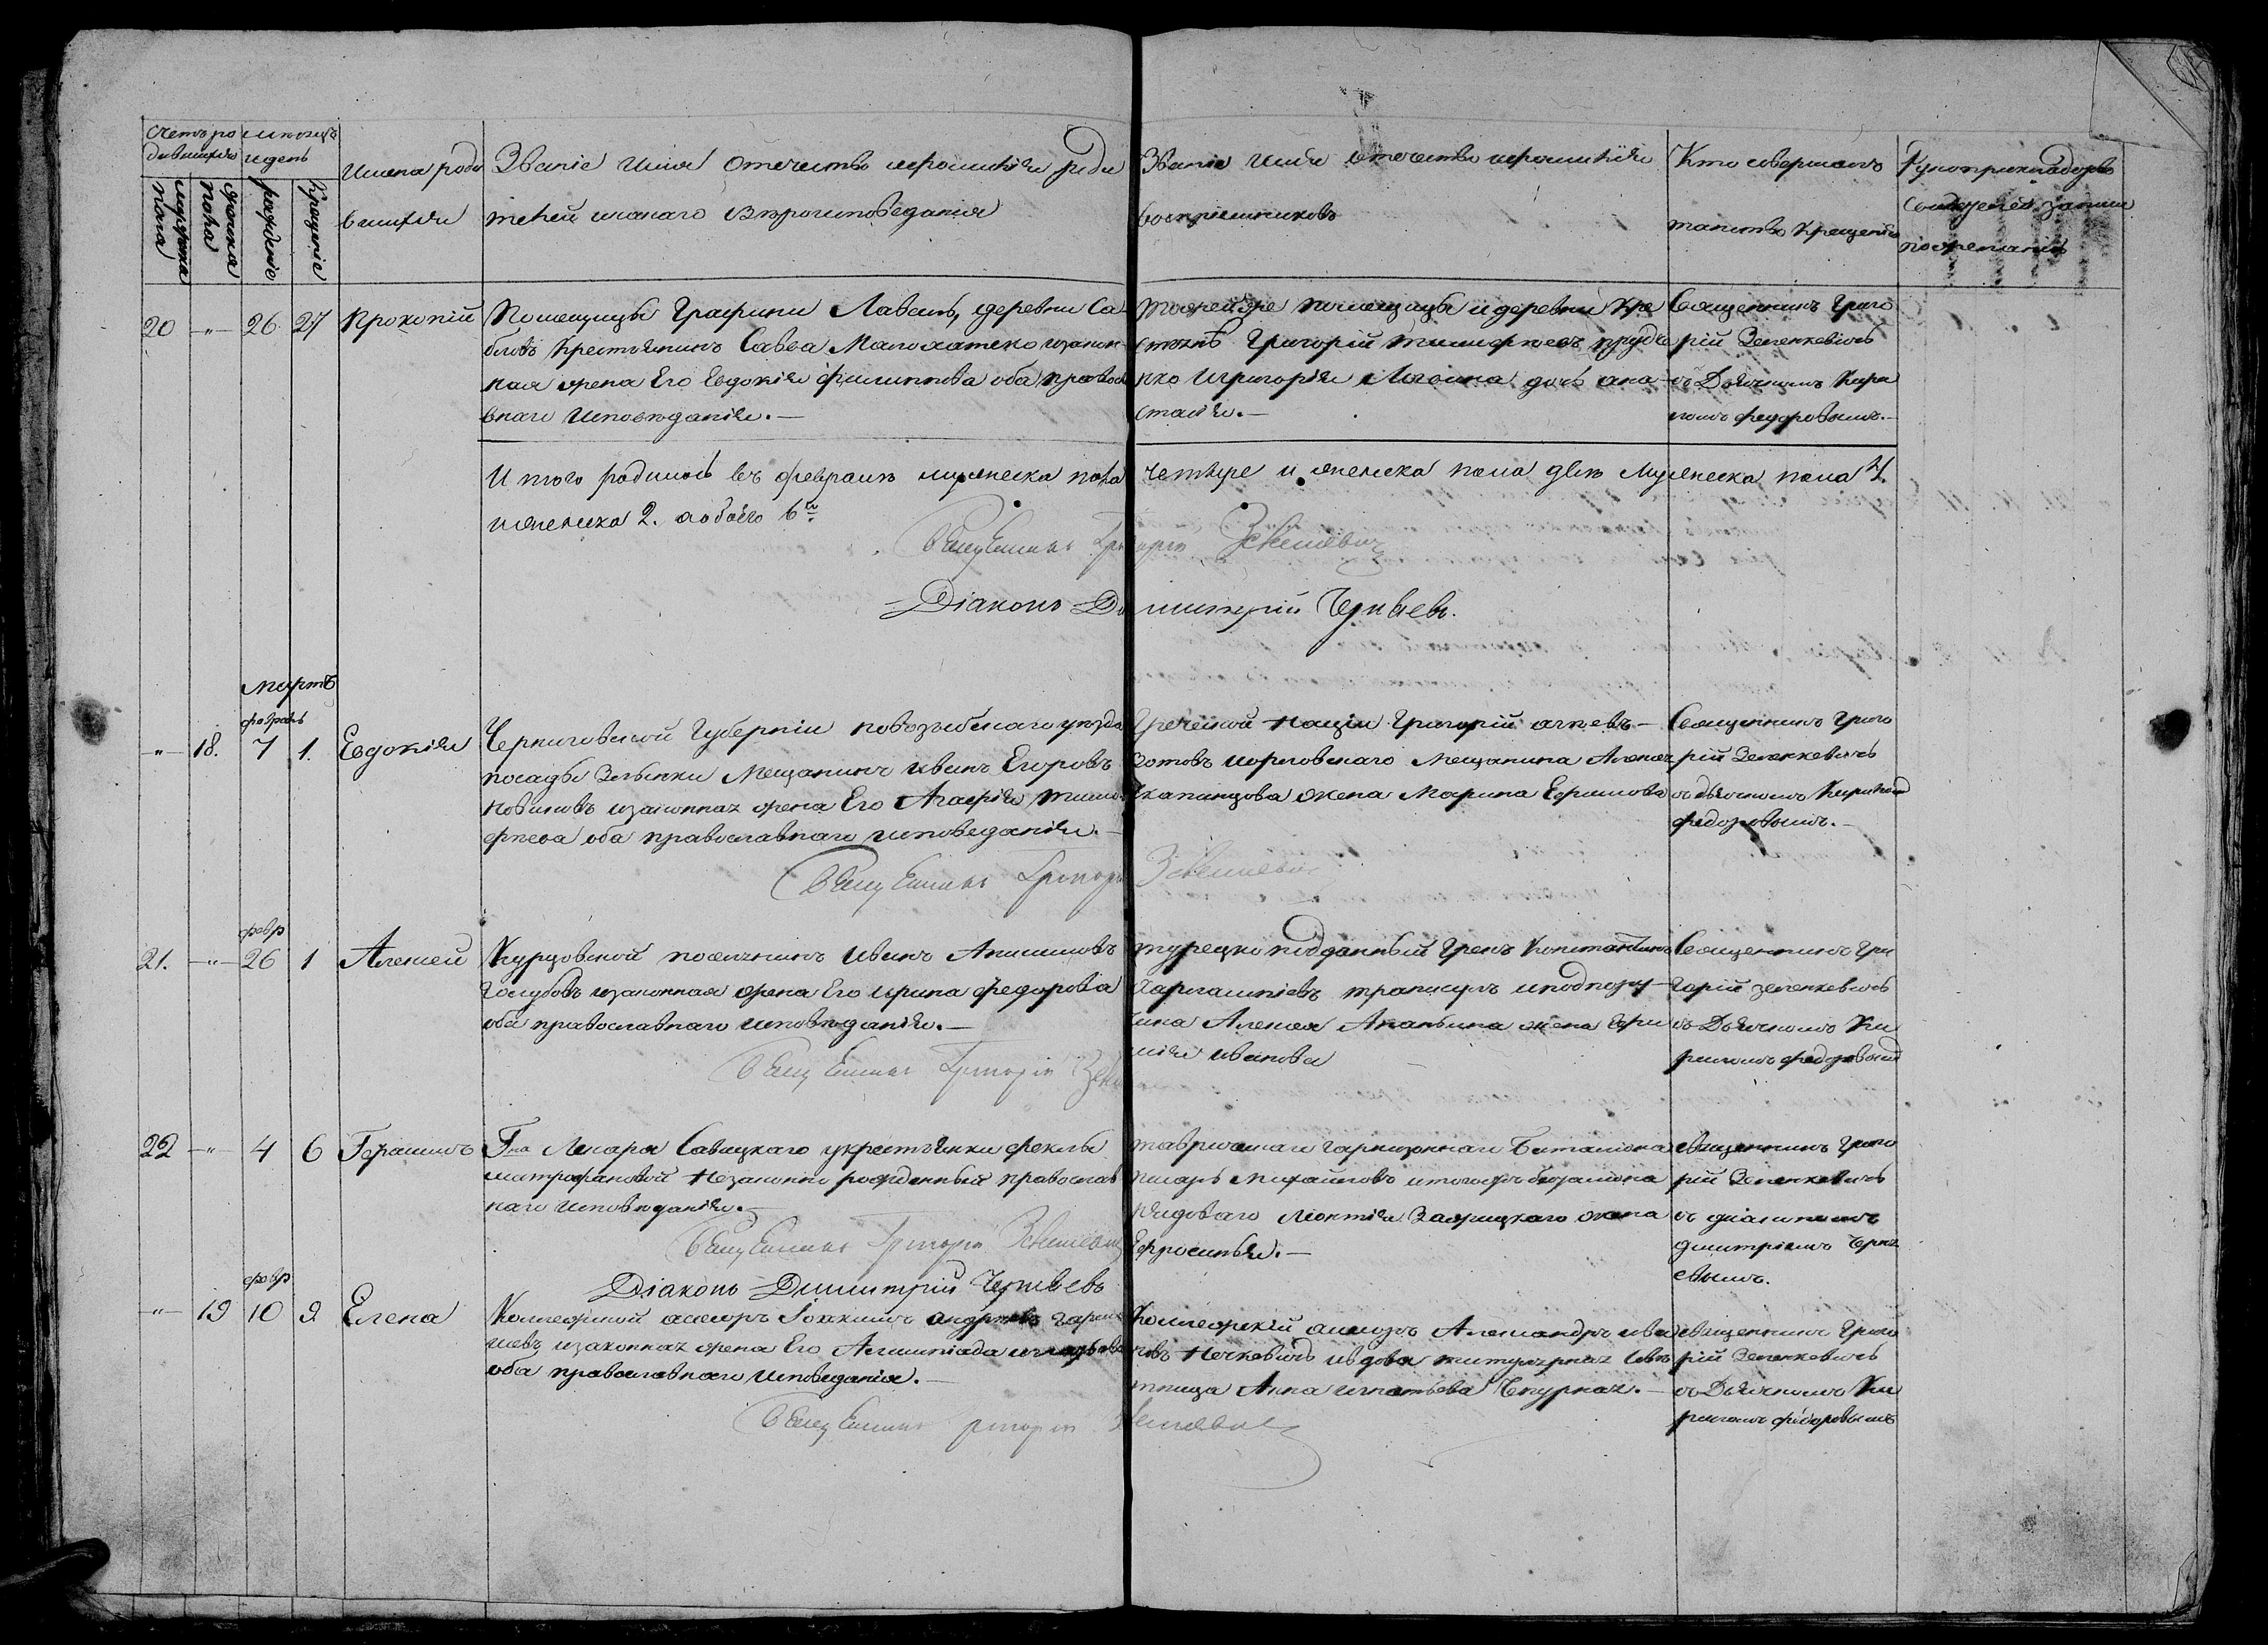 Счетъ ро
дившихся
мѣсяцъ
и день
мужеска
пола
женска
пола
рожденіе
крещеніе
Имена роди
вшихся
Званіе имя отечество и фамилія роди
телей и какого вѣроисповеданія
Званіе имя отечество и фамилія
воспріемниковъ
Кто совершалъ
таинство крещенія
Рукоприкладство
свидѣтелей записи
по желанію
20 -"- 26. 27 Прокопій
Помещицы Графини Лаваль, деревни Са
блов Крестьянинъ Савва Малохатко и закон-
ная жена Его Евдокія Филиппова оба правосла
внаго исповѣданія.—
тойже помещицы и деревни Кре
стьянѣ Григорій Тимофеевъ
и Григорія дочь Ана-
стасія.—
Священникъ Григо
рій Зеленкевичъ
съ Дьячкомъ Кири
ломъ Федоровымъ.—
И того родилось въ февралѣ мужеска пола четыре и женска пола двѣ Мужеска пола 4.
и женска 2. а обоего 6ть
Священникъ Григорій Зеленкевичъ
Діаконъ Димитрій Чернѣевъ.
Мартъ
февраль
-"- 18. 7 1. Евдокія
Черниговской Губерніи новозыбскаго уезда
посады Злынки Мещанинъ Иванъ Егоровъ
Новиковъ и законная жена Его Агафія Тимо-
феева оба православнаго исповеданія.—
Греческой Націи Григорій
Зотовъ и орловскаго Мещанина Алексея
Скапанцова жена Марина Ефимова
Священникъ Григо
рій Зеленкевичъ
съ дьячкомъ Кириломъ
Федоровымъ.—
Священникъ Григорій Зеленкевичъ
февр
21. -"- 26 1 Алексей
Курцовской поселянинъ Иванъ Анисимовъ
Голубовъ и законная жена Его Ирина Федорова
оба православнаго исповѣданія.—
турецко подданный Грекъ Константинъ
и подпору-
чика Алексея Ананьина жена
Иванова
Священникъ Гри
горій Зеленкевичъ
съ Дьячкомъ Ки
риломъ Федоровымъ
Священникъ Григорій Зелен
22 -"- 4 6 Герасимъ
Гна Лекаря Савицкаго у крестьянки Феклы
митрофановой Незаконно рожденный православ
наго исповѣданія.—
таврическаго гарнизоннаго Баталіона
писарь Михайловъ и того жъ баталіона
рядоваго Леонтія жена
Ефросинья.—
священникъ Григо
рій Зеленкевичъ
съ діакономъ
Димитріемъ Черне
евымъ.
Священникъ Григорій Зеленкевичъ
Діаконъ Димитрій Чернѣевъ
февр
-"- 19 10 9 Елена
Коллежской асесоръ Іоакимъ Андреевъ
и законная жена Его
оба православнаго исповеданія.—
Коллежскій асесоръ Александръ Ива
новъ и вдова титулярная Совѣ
тница Анна Игнатьева
священникъ Григо
рій Зеленкевичъ
съ Дьячкомъ Ки
риломъ Федоровымъ
Священникъ Григорій Зеленкевичъ